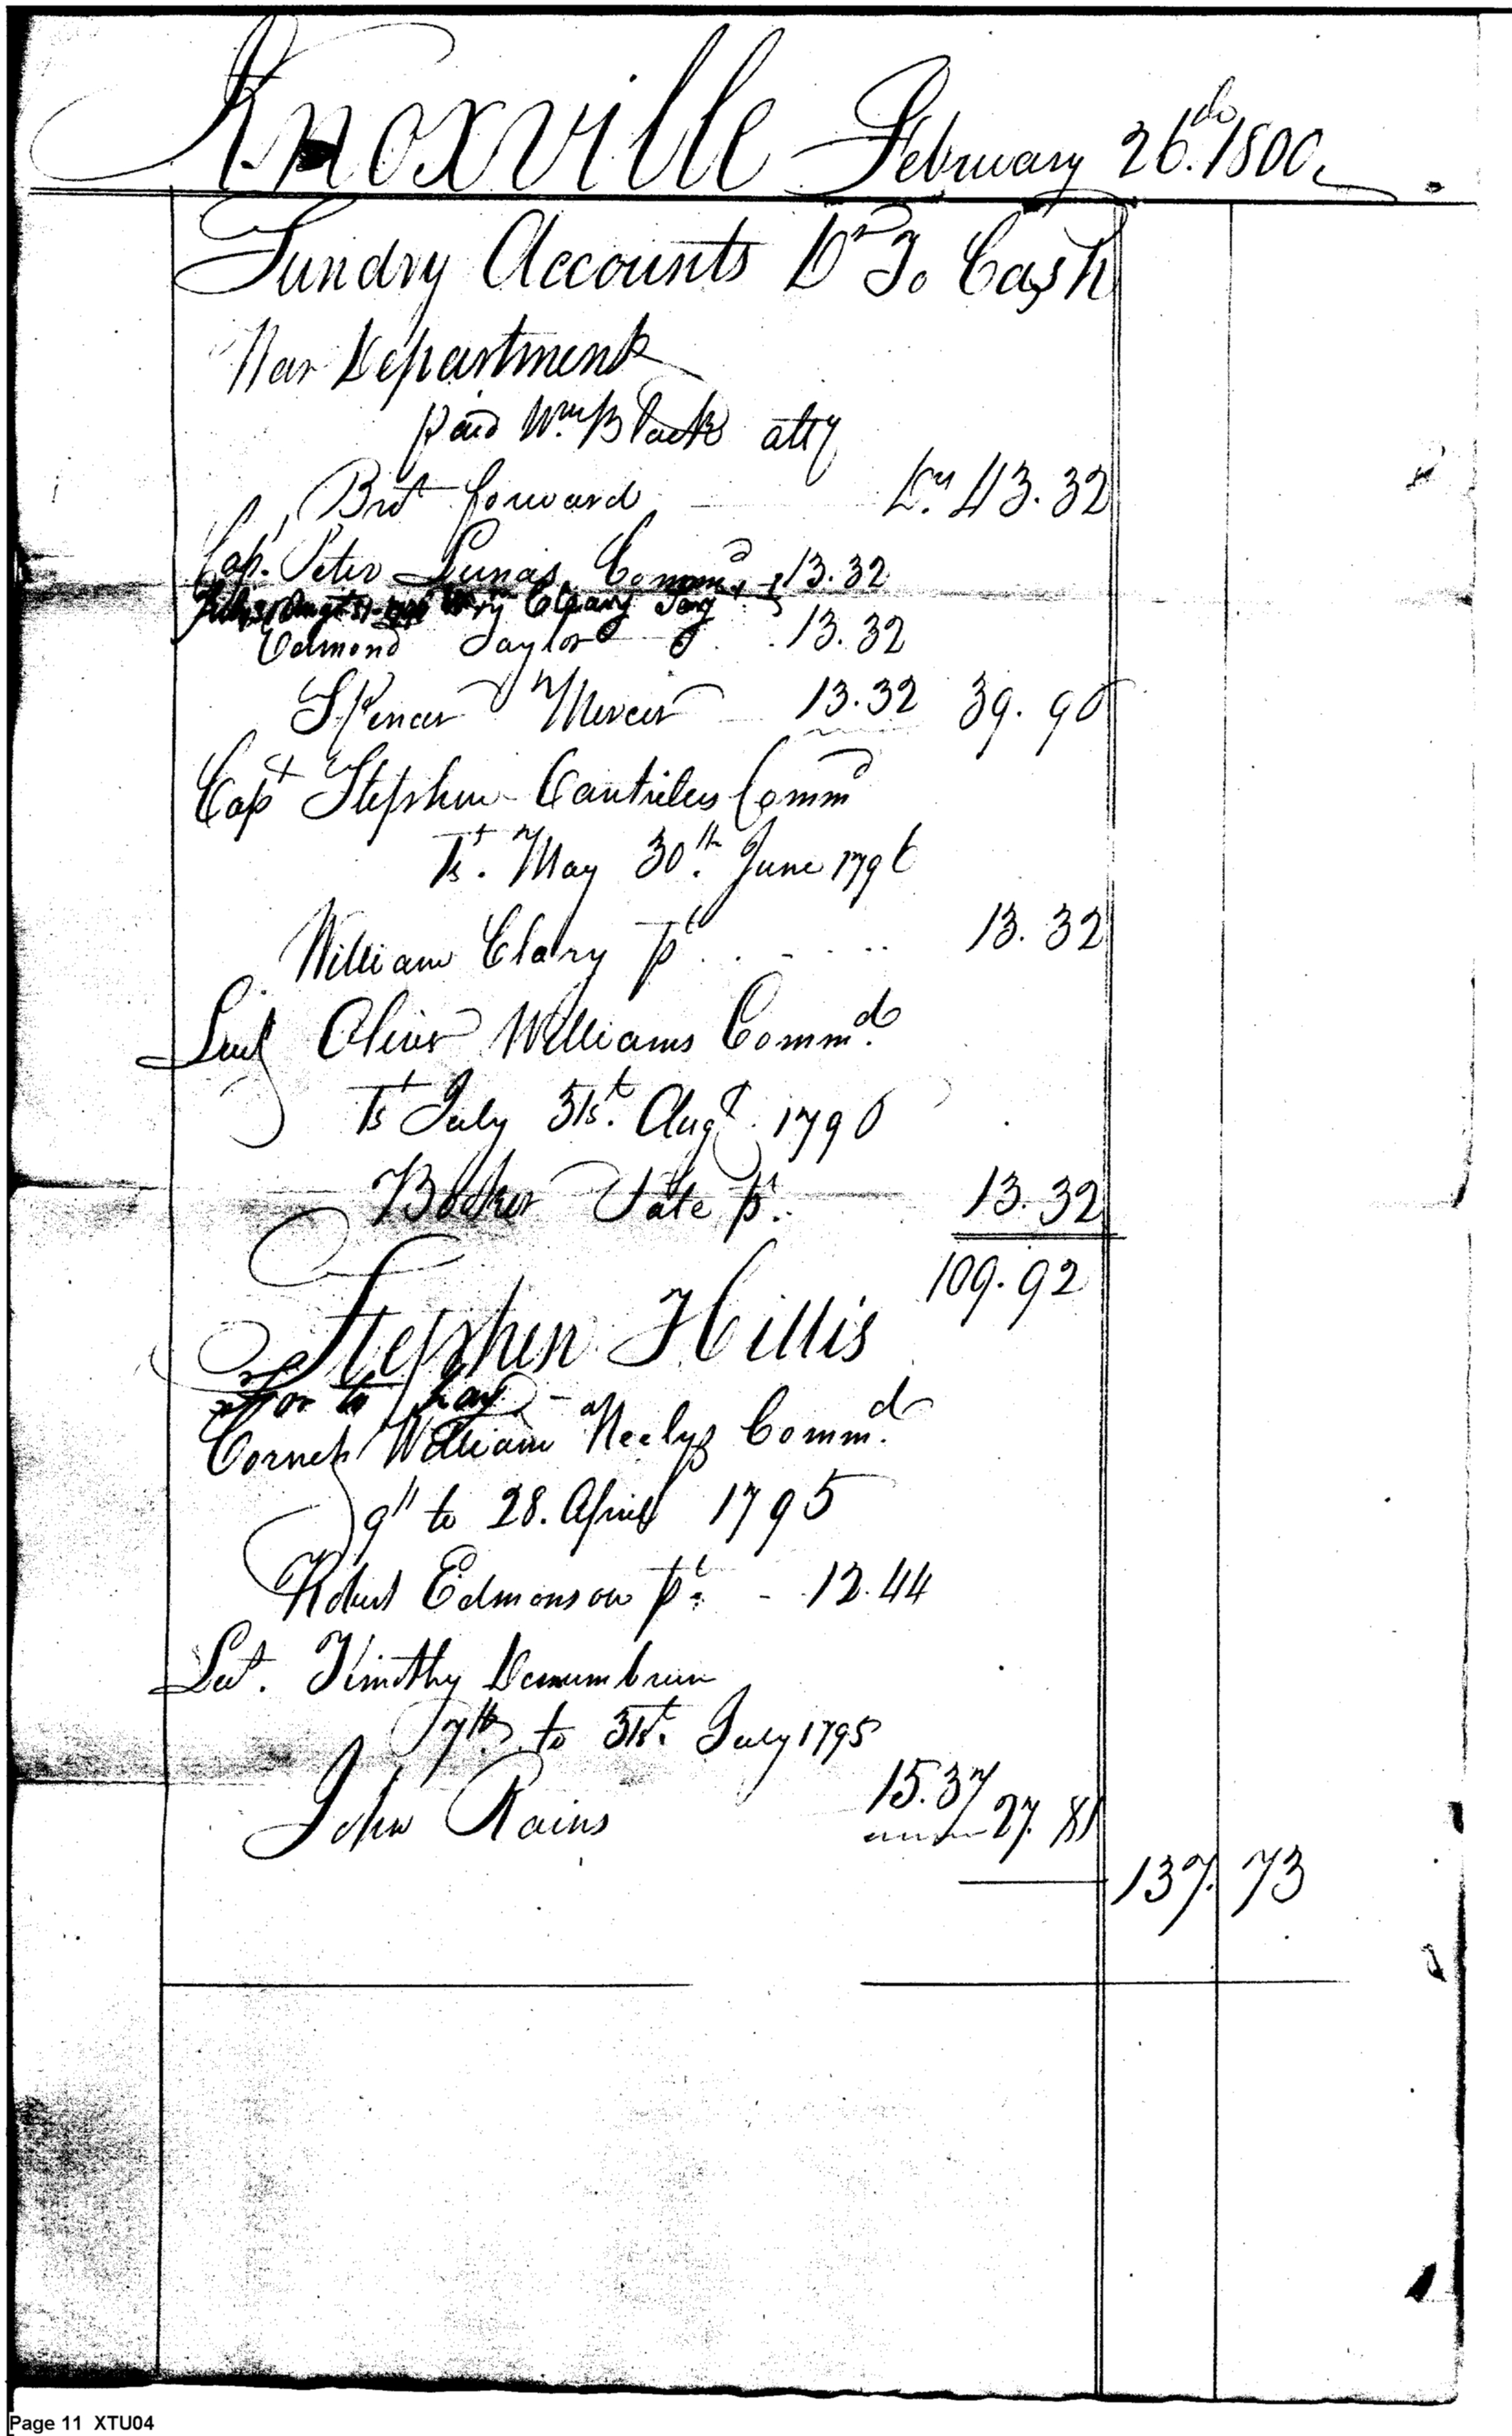 Knoxville February 26.th 1800
Sundry Accounts Dr To Cash
War Department
paid Wm Black atty
Brt forward Drs 43.32
Cap. Peter Commd 13.32
Wm Clary Serg
Edmond Taylor 13.32
Spencer Mercer 13.32 39.96
Capt Stephen Cantrilus Commd
1st. May 30th. June 1796
William Clary pt 13.32
Lieut Oliver Williams Comm.d
1st July 31st. Augt. 1796
Booker Tate pt. 13.32
109.92
Stephen Hillis
for to pay
Cornet William Neelys Comm.d
9th to 28. April 1795
Robert Edmonson pt. 12.44
Lut. Timothy Demumbrun
7th to 31st. July 1795
15.37
John Rains 27.81
137.73
Page 11 XTU04